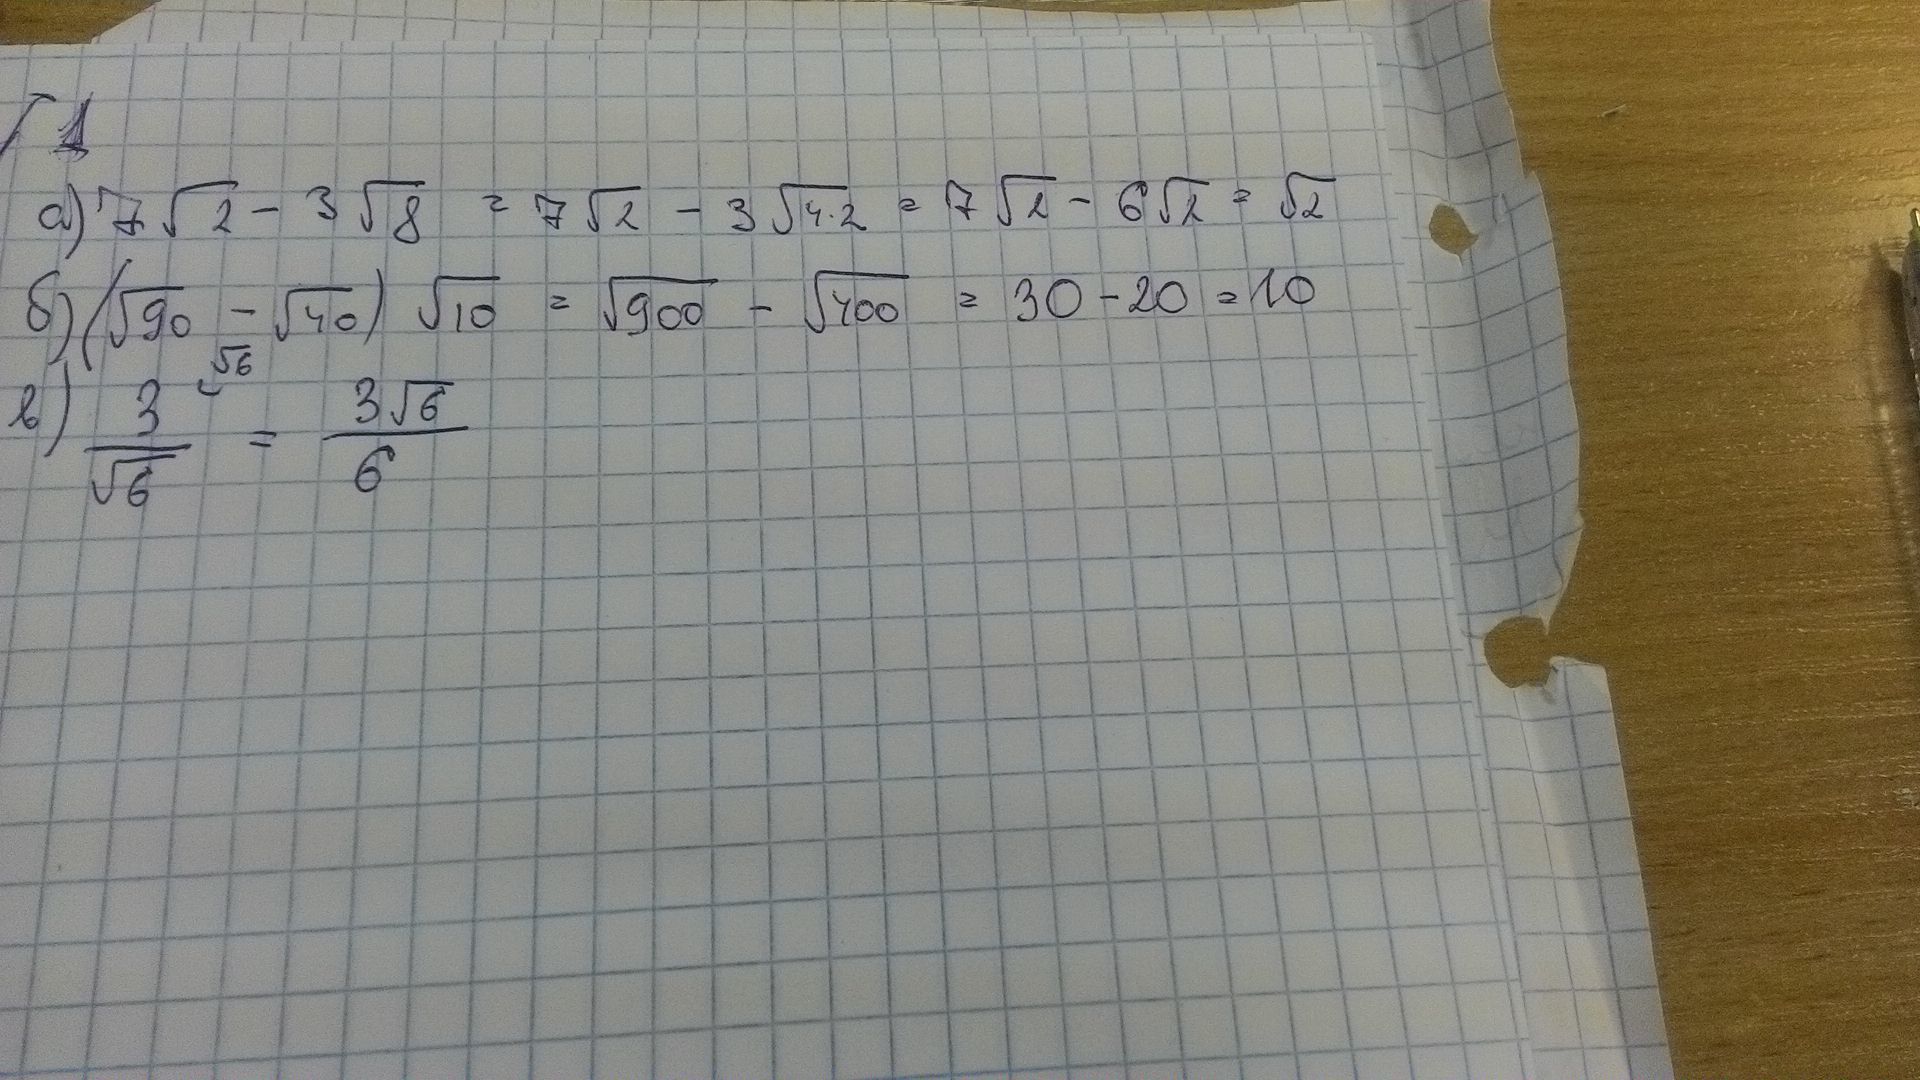 1
а) 7√2 - 3√8 = 7√2 - 3√4·2 = 7√2 - 6√2 = √2
б) (√90 - √40) √10 = √900 - √400 = 30 - 20 = 10
в) 3/√6 ^√6 = 3√6/6